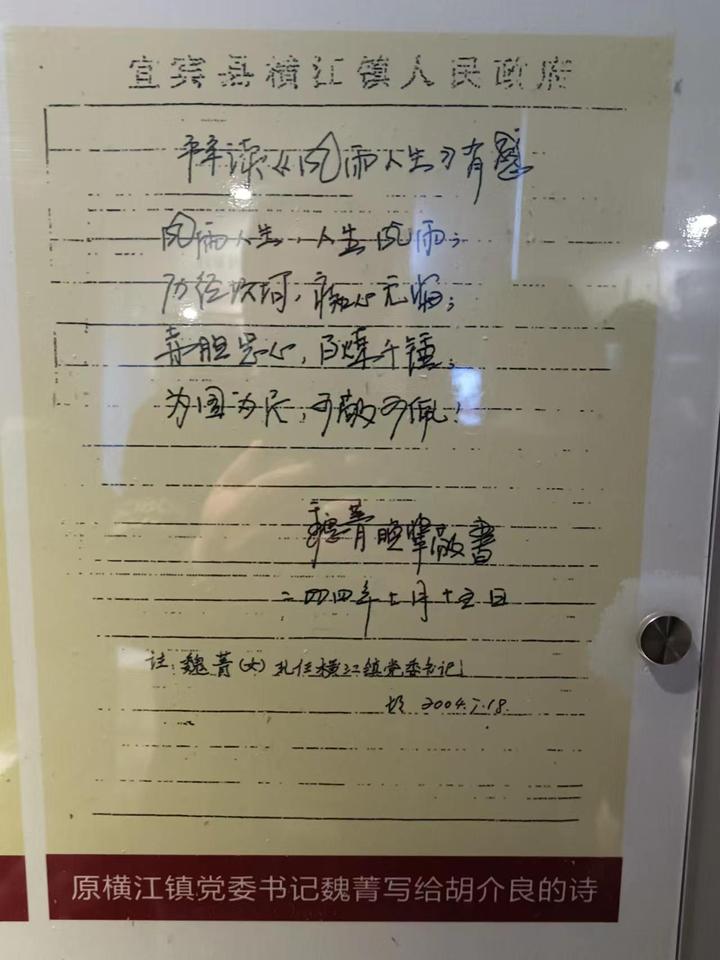 宜宾县横江镇人民政府
拜读《风雨人生》有感
风雨人生,人生风雨;
历经坎坷,痴心无悔;
赤胆忠心,百炼千锤;
为国为民,可敬可佩!
魏菁晚辈敬书
二四年七月十五日
注:魏菁(女)现任横江镇党委书记
2004.7.18.
原横江镇党委书记魏菁写给胡介良的诗